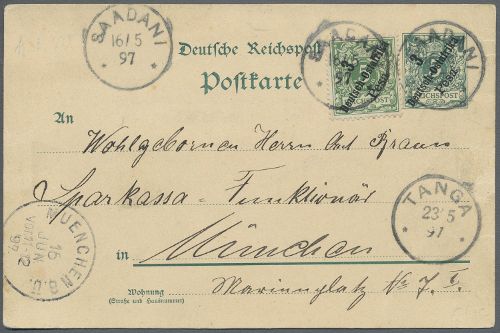 SAADANI
16/5
97
Deutsche Reichspost
Postkarte
SAADANI
97
3
Deutsch-Ostafrika
Pesa
REICHSPOST
SAADANI
3
Deutsch-Ostafrika
Pesa
REICHSPOST
An
Wohlgeborenen Herrn Braun
Sparkassa-Funktionär
TANGA
23/5
97
MUENCHEN B.U.
16
JUN
97
in München
Marienplatz No 7 I.
Wohnung
(Straße und Hausnummer)